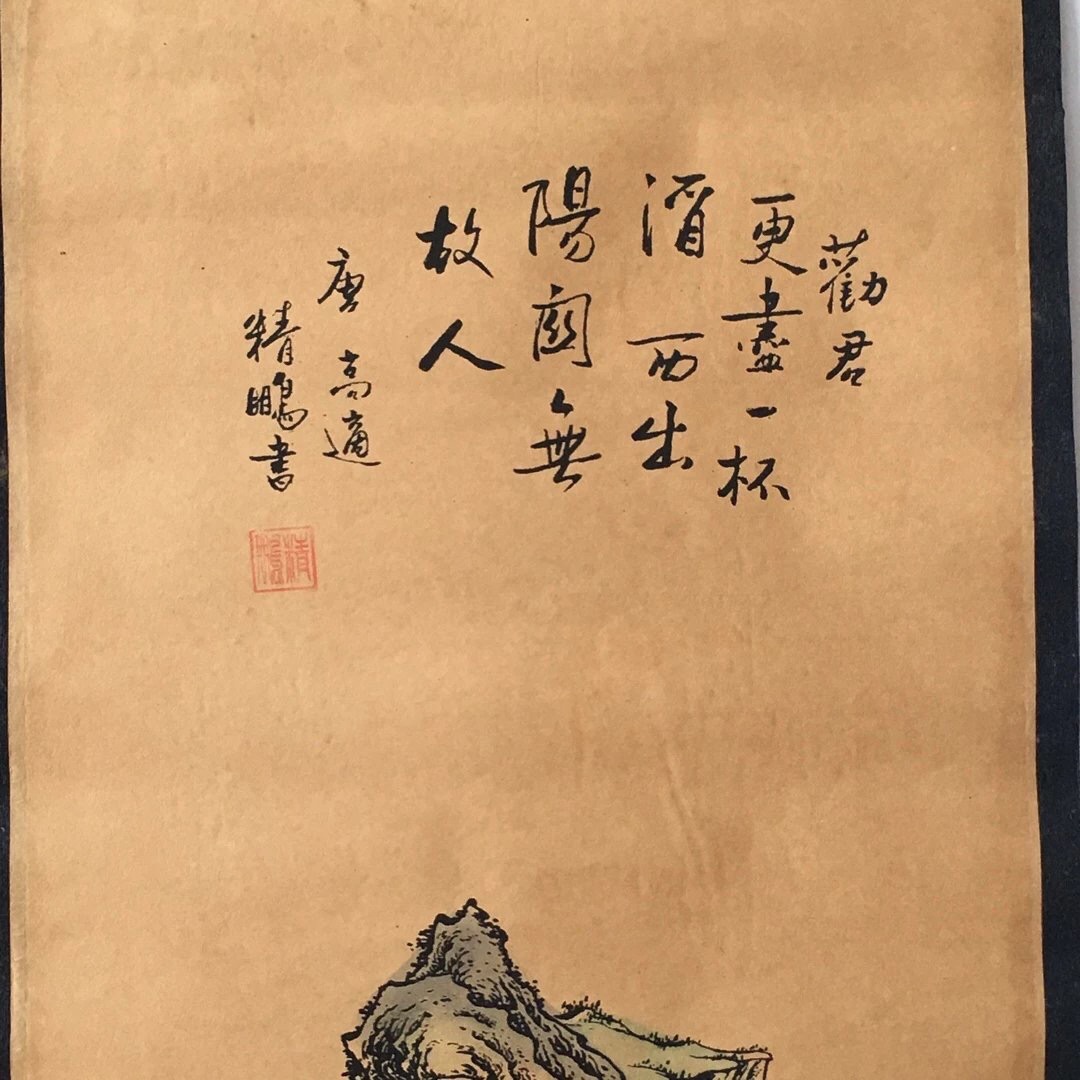 勸君
更盡一杯
酒 西出
陽關無
故人
唐 高適
精鵬書
精鵬